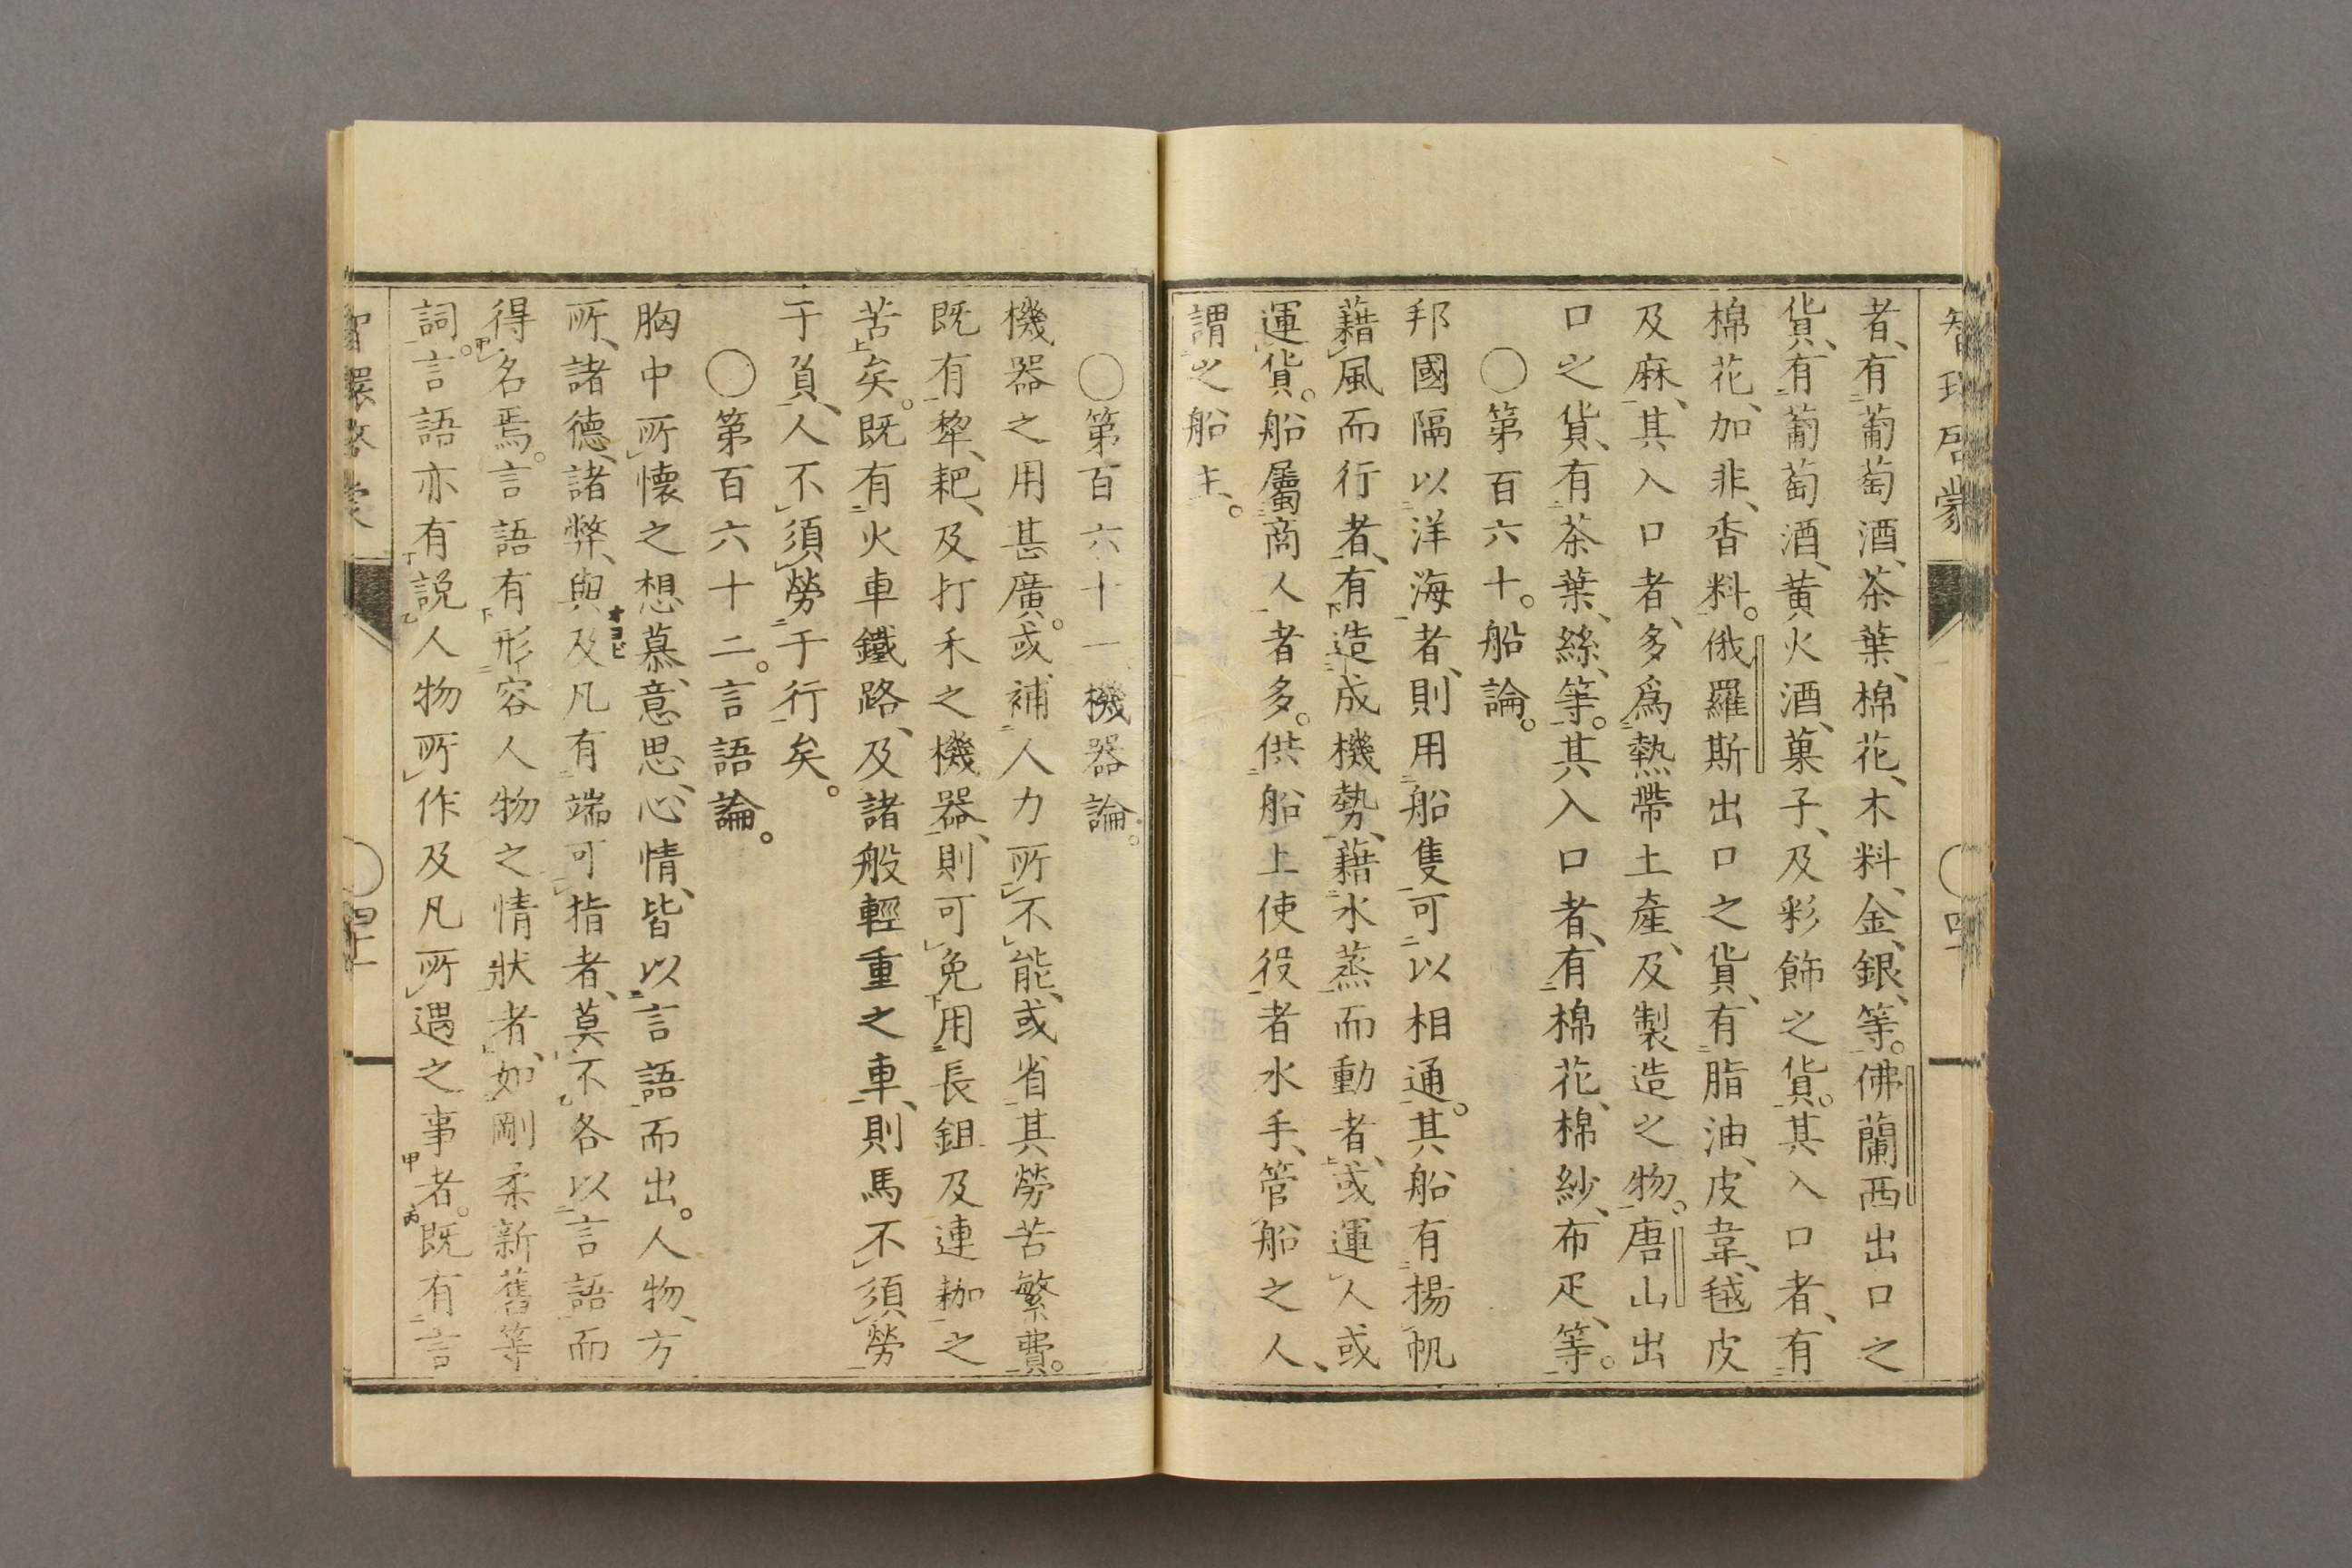 者、有葡萄酒、茶葉、棉花、木料、金、銀、等。佛蘭西出口之
貨、有葡萄酒、黄火酒、菓子、及彩飾之貨。其入口者、有
棉花、加非、香料。俄羅斯出口之貨、有脂油、皮韋、毧皮
及麻、其入口者、多爲熱帶土產、及製造之物。唐山出
口之貨、有茶葉、絲、等。其入口者、有棉花、棉紗、布疋、等。
〇第百六十。船論。
邦國隔以洋海者、則用船隻可以相通。其船有揚帆
藉風而行者、有造成機勢、藉水蒸而動者、或運人或
運貨。船屬商人者多。供船上使役者水手、管船之人、
謂之船主。
〇第百六十一、機器論。
機器之用甚廣。或補人力所不能、或省其勞苦繁費。
既有犂、耙、及打禾之機器、則可免用長鉏及連耞之
苦矣。既有火車鐵路、及諸般輕重之車、則馬不須勞
于負、人不須勞于行矣。
〇第百六十二。言語論。
胸中所懷之想慕、意思、心情、皆以言語而出。人物、方
所、諸德、諸弊、與及凡有端可指者、莫不各以言語而
得名焉。言語有形容人物之情狀者、如剛柔新舊等
詞。言語亦有説人物所作及凡所遇之事者。既有言